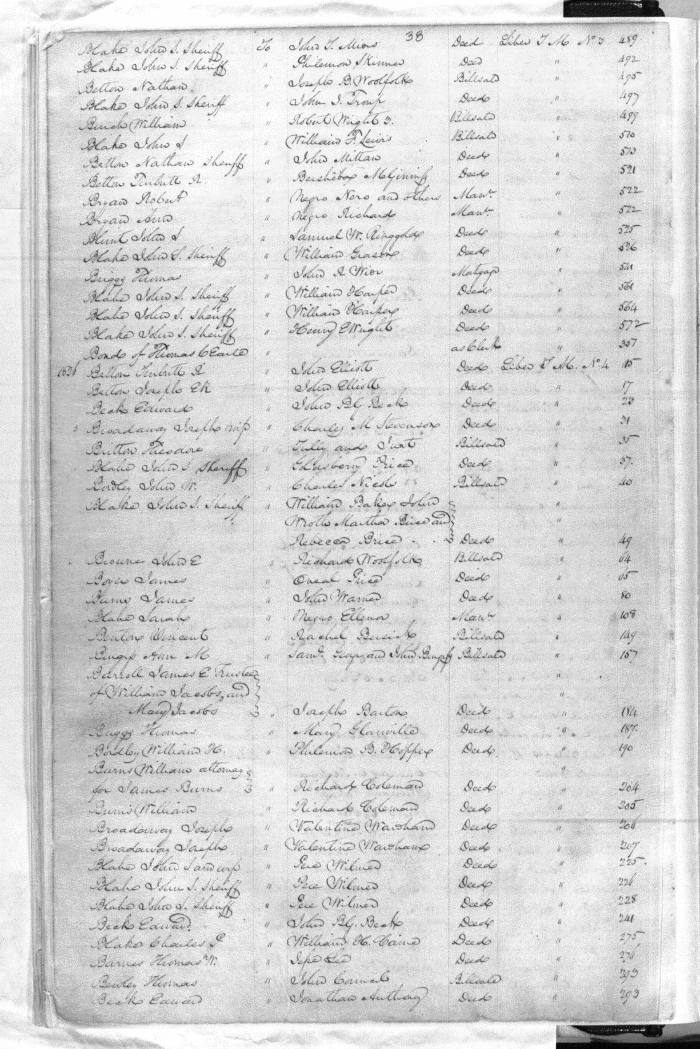 38
Blake John S. Sheriff To John T. Miers Deed Liber T M No 3 489
Blake John S. Sheriff " Philemon Skinner Deed " 492
Betton Nathan " Joseph B Woolfolk Billsale " 495
Blake John S. Sheriff " John I. Troup Deed " 497
William " Robert Wright Billsale " 499
Blake John S " William F. Lewis Billsale " 510
Betton Nathan Sheriff " John Mittan Deed " 513
Betton Turbutt R. " McGinniss Deed " 521
Bryan Robert " Negro Nero and others Manr. " 522
Bryan Ann " Negro Richard Manr. " 522
Blunt John S " Samuel W. Ringgold Deed " 525
Blake John S. Sheriff " William Deed " 526
Briggs Thomas " John A Wier 541
Blake John S. Sheriff " William Harper Deed " 561
Blake John S. Sheriff " William Harper Deed " 564
Blake John S. Sheriff " Henry E Wright Deed " 572
Bond of Thomas C Earle " as Clerk " 357
Betton Turbutt R " John Elliott Deed Liber T M. No. 4 15
Betton Joseph EK " John Elliott Deed " 17
Beck Edward " John Beck Deed " 23
Broadaway Joseph " Charles M Stevenson Deed " 31
Theodore " Tilly and Billsale " 35
Blake John S Sheriff " Goldsberry Price Deed " 37
Bordley John W. " Charles Billsale " 40
Blake John S. Sheriff " William Baker John "
Wroth Martha Brice and "
Rebecca Brice Deed " 49
Browne John E " Richard Woolfolk Billsale " 64
James " Price Deed " 65
James " John Warner Deed " 80
Blake Sarah " Negro Ellenor Manr " 108
Vincent " Rachel Billsale " 149
Ann M " Saml. George and John Billsale " 157
Barroll James E Trustee "
of William Jacobs and "
Mary Jacobs " Joseph Barton Deed " 184
Briggs Thomas " Mary Glanville Deed " 187
Bordley William H. " Philemon B. Hopper Deed " 190
Burns William attorney "
for James Burns " Richard Coleman Deed " 204
Burns William " Richard Coleman Deed " 205
Broadaway Joseph " Valentine Deed " 206
Broadaway Joseph " Valentine Deed " 207
Blake John S " Pere Wilmer Deed " 225
Blake John S. Sheriff " Pere Wilmer Deed " 226
Blake John S. Sheriff " Pere Wilmer Deed " 228
Beck Edward " John Beck Deed " 241
Blake Charles " William H. Deed " 275
Barnes Thomas W. " Deed " 276
Thomas " John Billsale " 293
Beck Edward " Jonathan Anthony Deed " 293